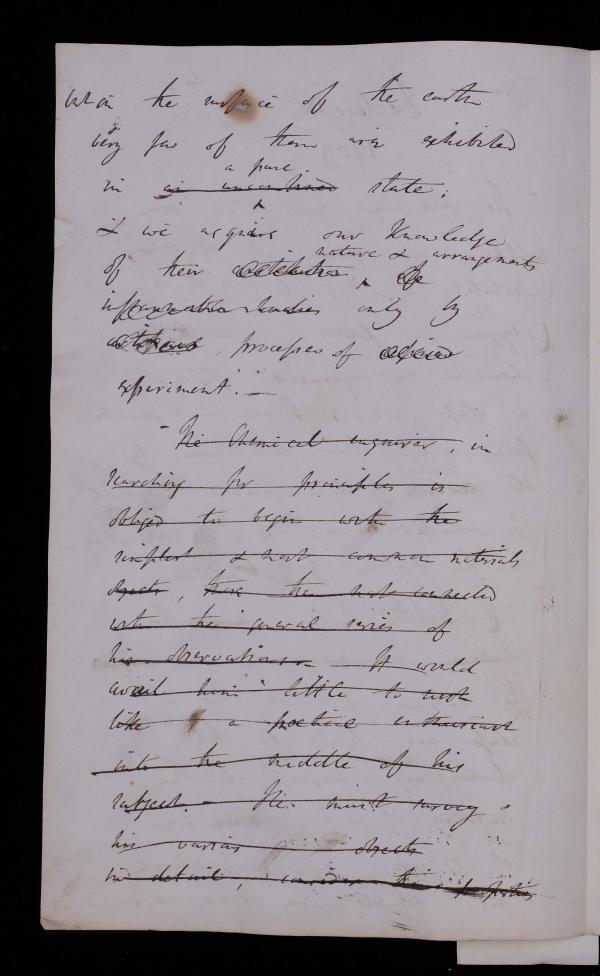 but on the surface of the earth
very few of them are exhibited
a pure
in an uncombined state;
& we acquire our knowledge
nature & arrangements
of their of
only by
processes of
experiment. —
The Chemical enquirer, in
searching for principles is
obliged to begin with the
simplest & most common materials
objects, those the most connected
with the general series of
his observations. — It would
avail him little to rush
like a poetical enthusiast
into the middle of his
subject. — He must survey
his various objects
in detail, consider their properties